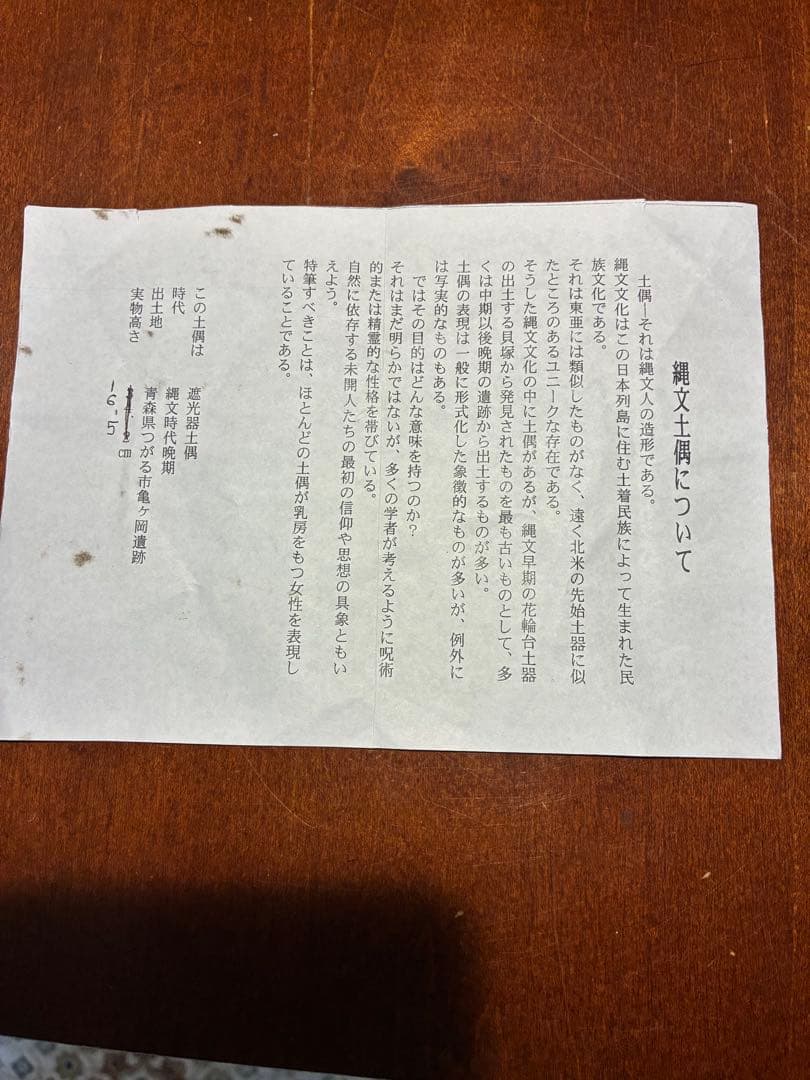 縄文土偶について
土偶―それは縄文人の造形である。
縄文文化はこの日本列島に住む土着民族によって生まれた民
族文化である。
それは東亜には類似したものがなく、遠く北米の先始土器に似
たところのあるユニークな存在である。
そうした縄文文化の中に土偶があるが、縄文早期の花輪台土器
の出土する貝塚から発見されたものを最も古いものとして、多
くは中期以後晩期の遺跡から出土するものが多い。
土偶の表現は一般に形式化した象徴的なものが多いが、例外に
は写実的なものもある。
ではその目的はどんな意味を持つのか?
それはまだ明らかではないが、多くの学者が考えるように呪術
的または精霊的な性格を帯びている。
自然に依存する未開人たちの最初の信仰や思想の具象ともい
えよう。
特筆すべきことは、ほとんどの土偶が乳房をもつ女性を表現し
ていることである。
この土偶は 遮光器土偶
時代 縄文時代晩期
出土地 青森県つがる市亀ヶ岡遺跡
実物高さ cm
16.5